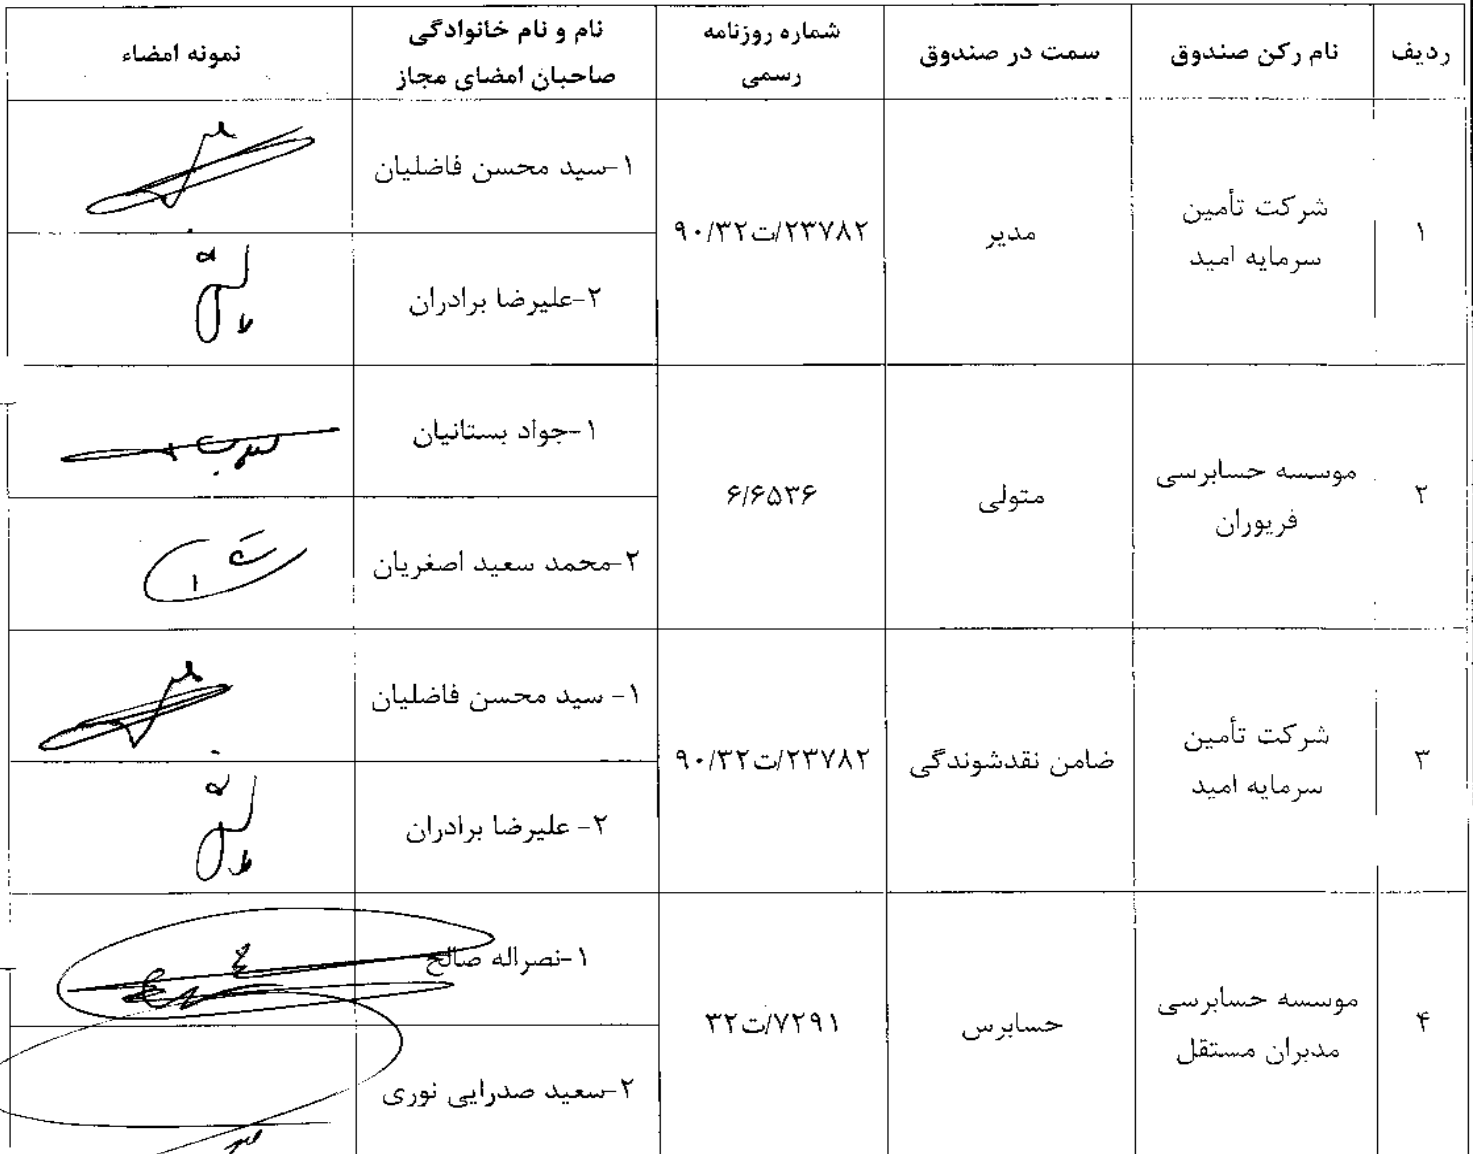 ردیف
نام رکن صندوق
سمت در صندوق
شماره روزنامه
رسمی
نام و نام خانوادگی
صاحبان امضای مجاز
نمونه امضاء
۱
شرکت تأمین
سرمایه امید
مدیر
۹۰/۳۲ت/۲۳۷۸۲
۱-سید محسن فاضلیان
۲-علیرضا برادران
۲
موسسه حسابرسی
فریوران
متولی
۶/۶۵۳۶
۱-جواد بستانیان
۲-محمد سعید اصغریان
۳
شرکت تأمین
سرمایه امید
ضامن نقدشوندگی
۹۰/۳۲ت/۲۳۷۸۲
۱- سید محسن فاضلیان
۲- علیرضا برادران
۴
موسسه حسابرسی
مدبران مستقل
حسابرس
۳۲ت/۷۲۹۱
۱-نصراله صالح
۲-سعید صدرایی نوری